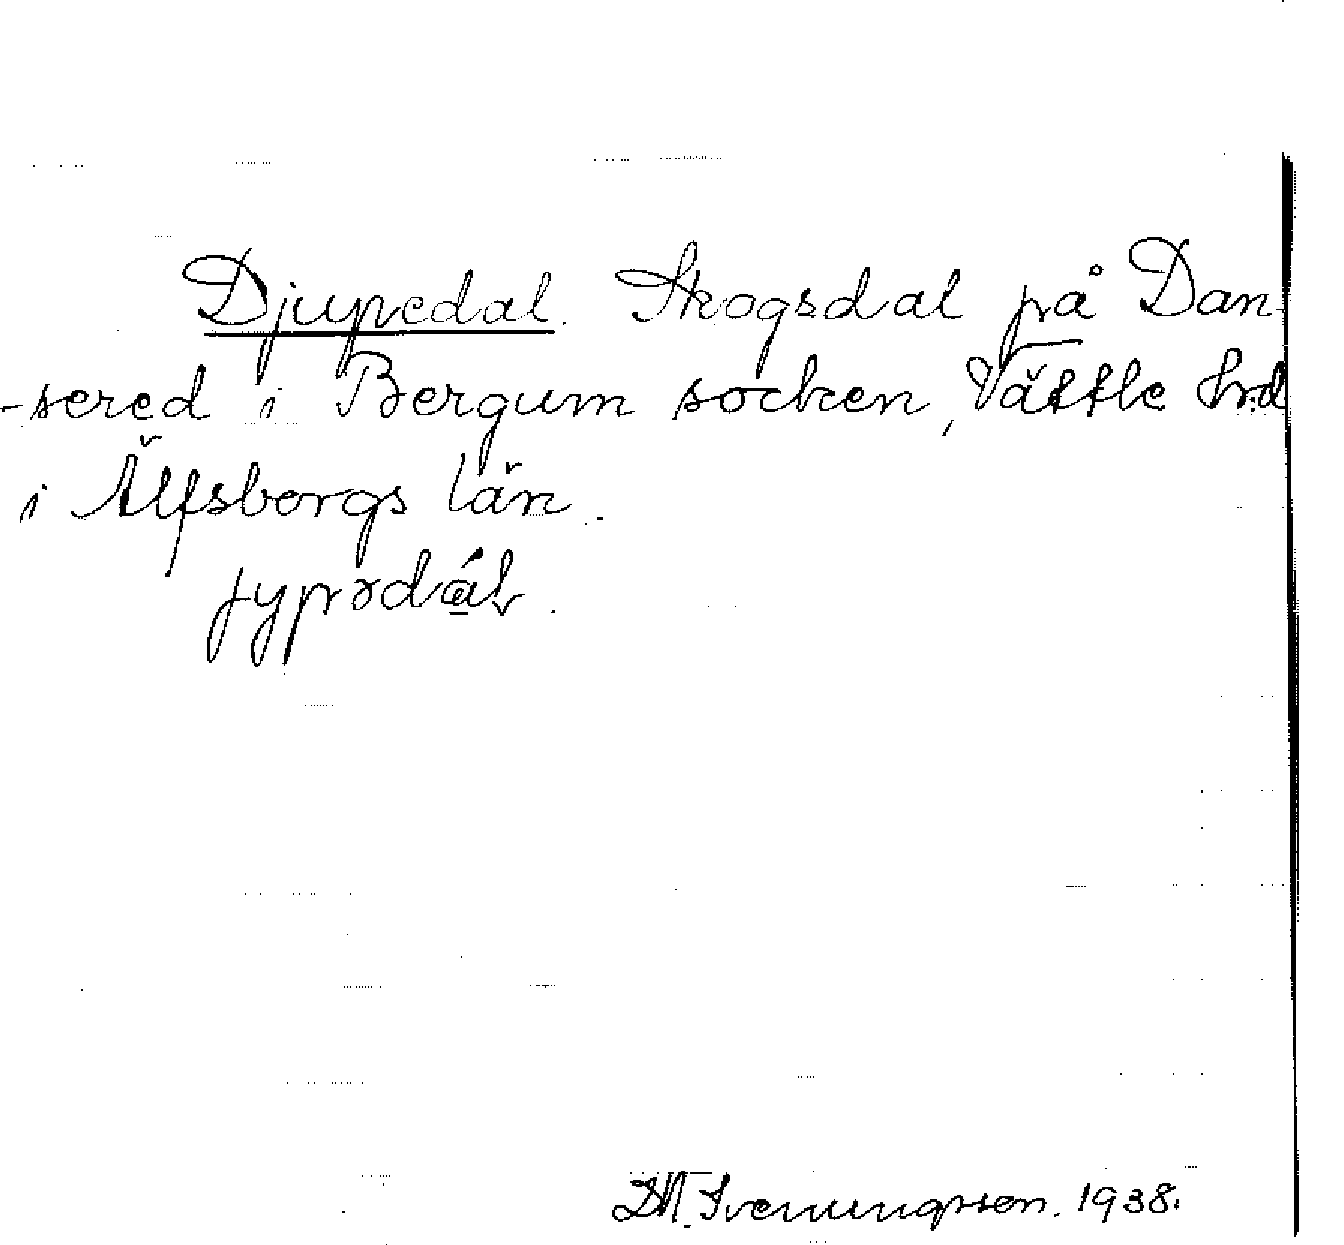 Djupedal. Skogsdal på Dan-
-sered i Bergum socken, Vättle hrd
i Älfsborgs län.
jypədál.
D.M. Svenungsson. 1938.